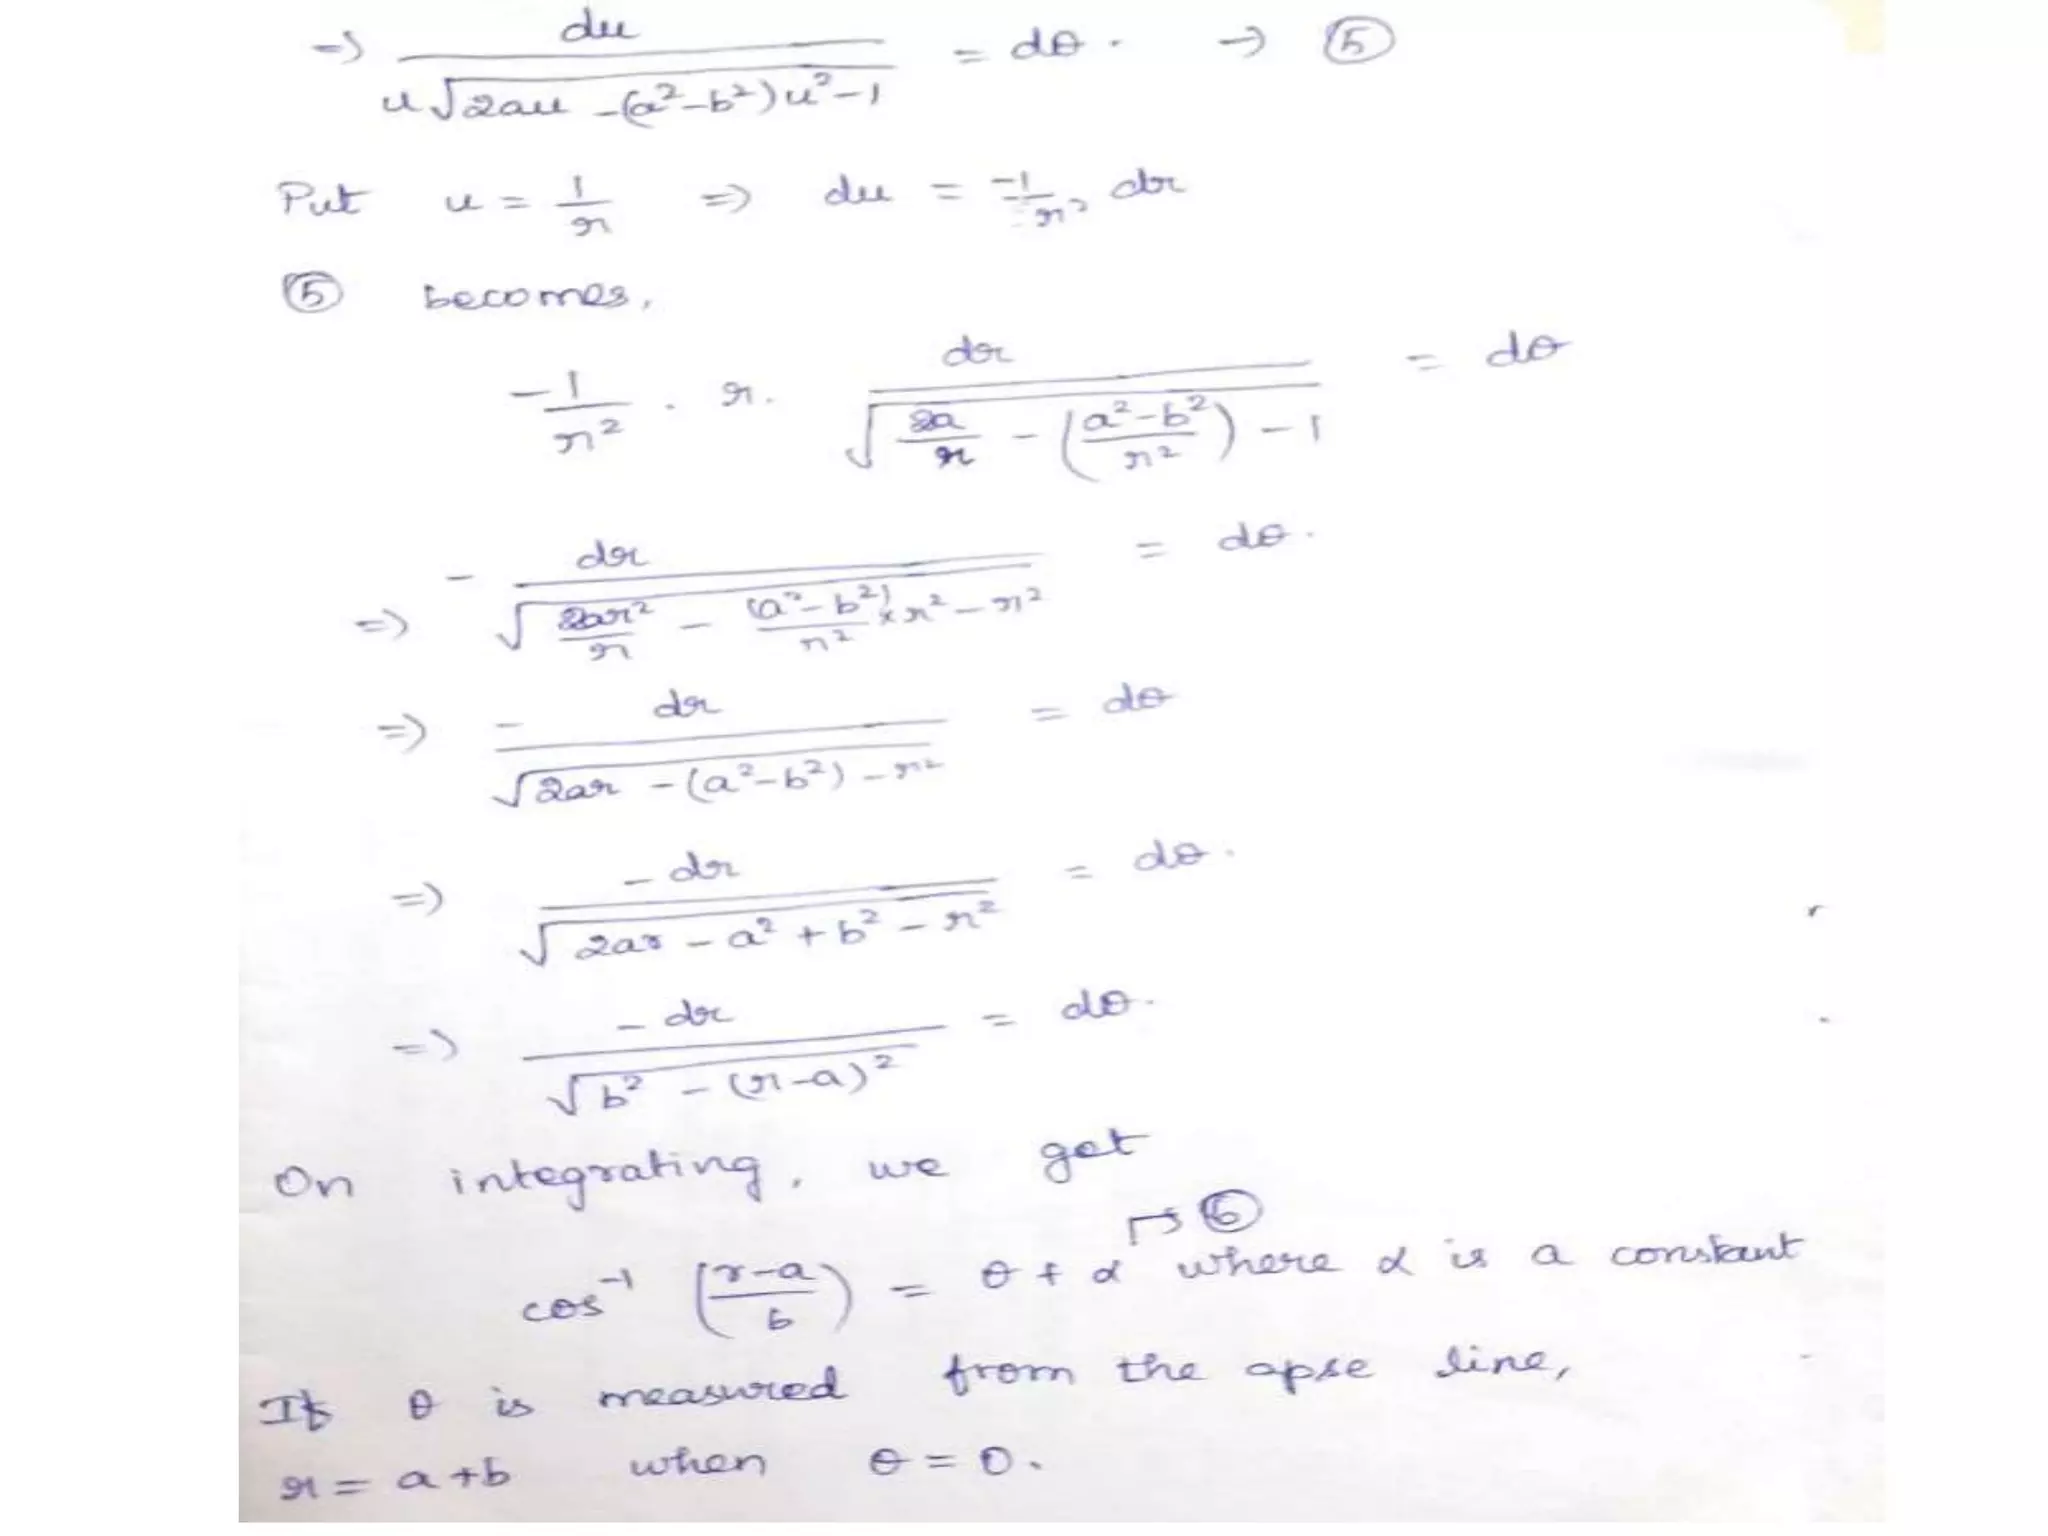 => du / u√2au - (a² - b²)u² - 1 = dθ. → ⑤
Put u = 1/r => du = -1/r² dr
⑤ becomes,
-1/r² . r. dr / √2a/r - (a² - b²/r²) - 1 = dθ
=> - dr / √2ar²/r - (a² - b²)/r² × r² - r² = dθ.
=> - dr / √2ar - (a² - b²) - r² = dθ
=> - dr / √2ar - a² + b² - r² = dθ.
=> - dr / √b² - (r - a)² = dθ.
On integrating, we get
cos⁻¹ (r - a / b) = θ + α → ⑥ where α is a constant
If θ is measured from the apse line,
r = a + b when θ = 0.